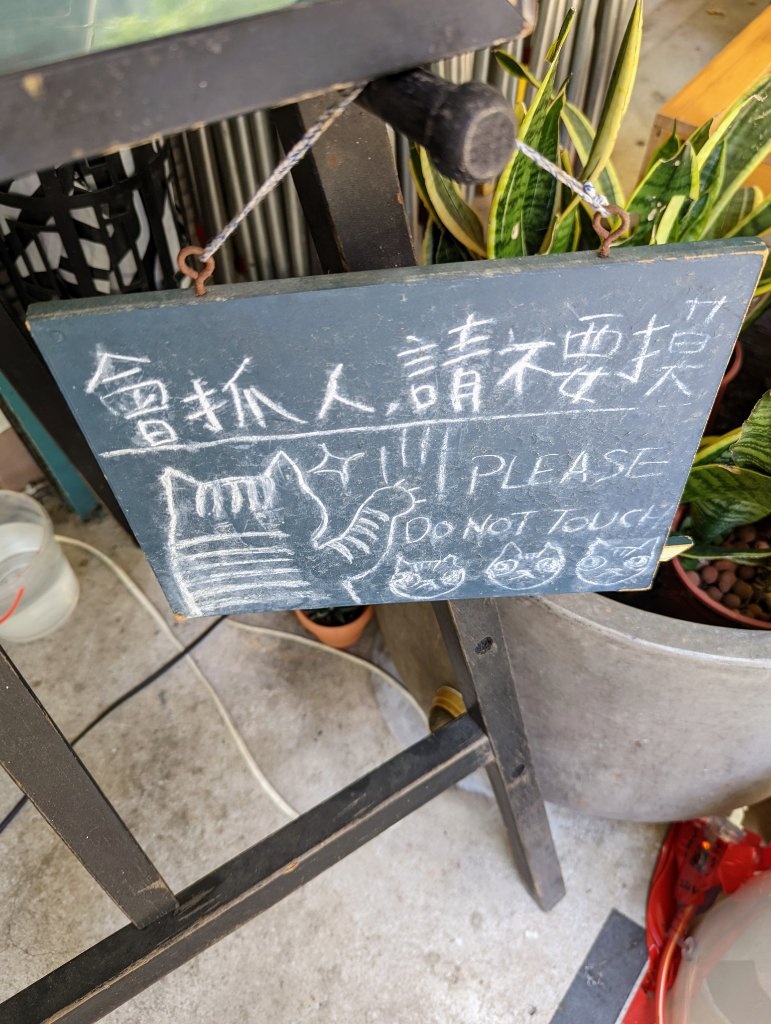 會抓人，請不要摸
PLEASE
DO NOT TOUCH